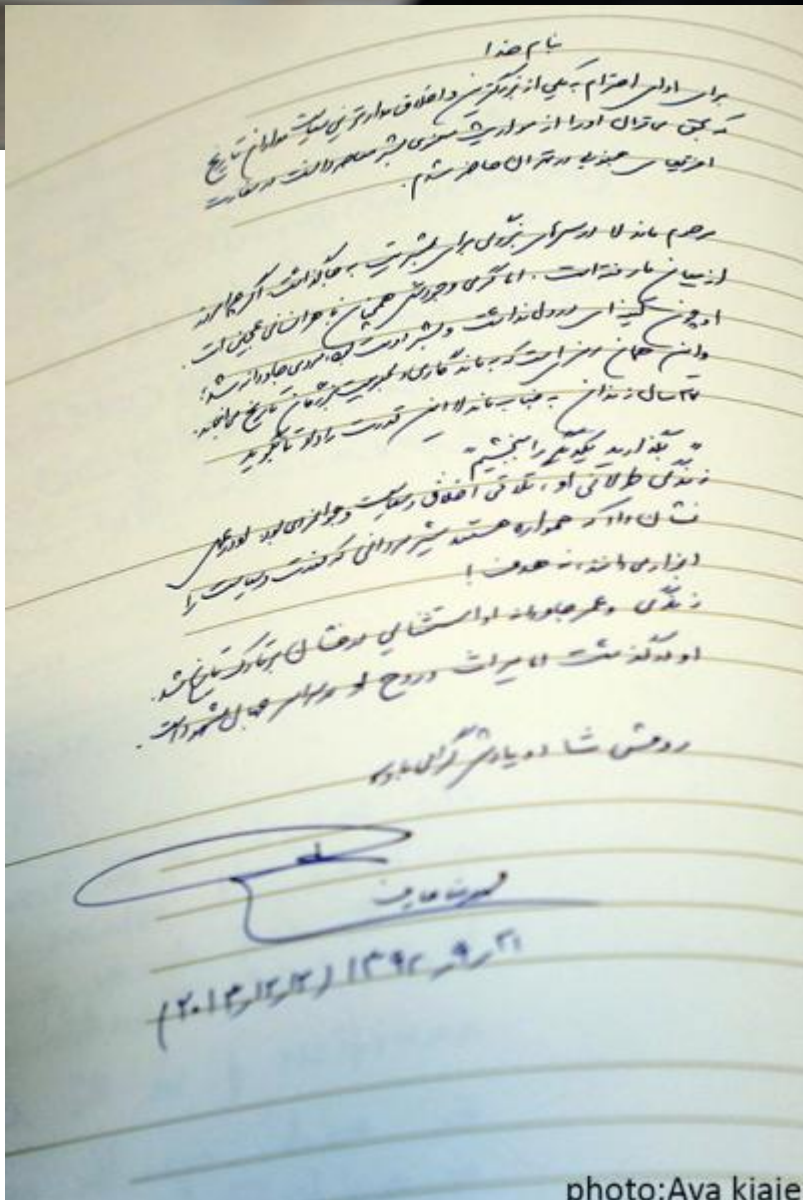 بنام خدا
برای ادای احترام به یکی از بزرگترین و اخلاق مدارترین سیاستمداران تاریخ
که بحق می‌توان او را از مواریث معنوی بشر معاصر دانست در سفارت
افریقای جنوبی در تهران حاضر شدم.
مرحوم ماندلا درسهای بزرگی برای بشریت به جا گذاشت. اگر چه امروز
از میان ما رفته است. اما گرمی وجودش همچنان با جهان ما عجین است.
او چون کینه‌ای در دل نداشت و بشر دوست بود، مردی جاودانه شد؛
و این همان رمزی است که به ماندگاری و محبوبیت قهرمان تاریخ می‌انجامد.
۲۷ سال زندان به جناب ماندلا این قدرت را داد تا بگوید
"بگذارید یکدیگر را ببخشیم"
زندگی طولانی او، تلاقی اخلاق و سیاست و جوانمردی بود. او در عمل
نشان داد که همواره هستند شیرمردانی که قدرت و سیاست را
ابزار می‌دانند، نه هدف!
زندگی و عمر جاودانه او استثنایی درخشان بر تارک تاریخ شد.
او درگذشت اما میراث و روح او در سراسر جهان حضور دارد.
روحش شاد و یادش گرامی باد
محمدرضا عارف
۲۱ر۹ر۱۳۹۲ (۱۲ر۱۲ر۲۰۱۳)
photo:Ava kiaie